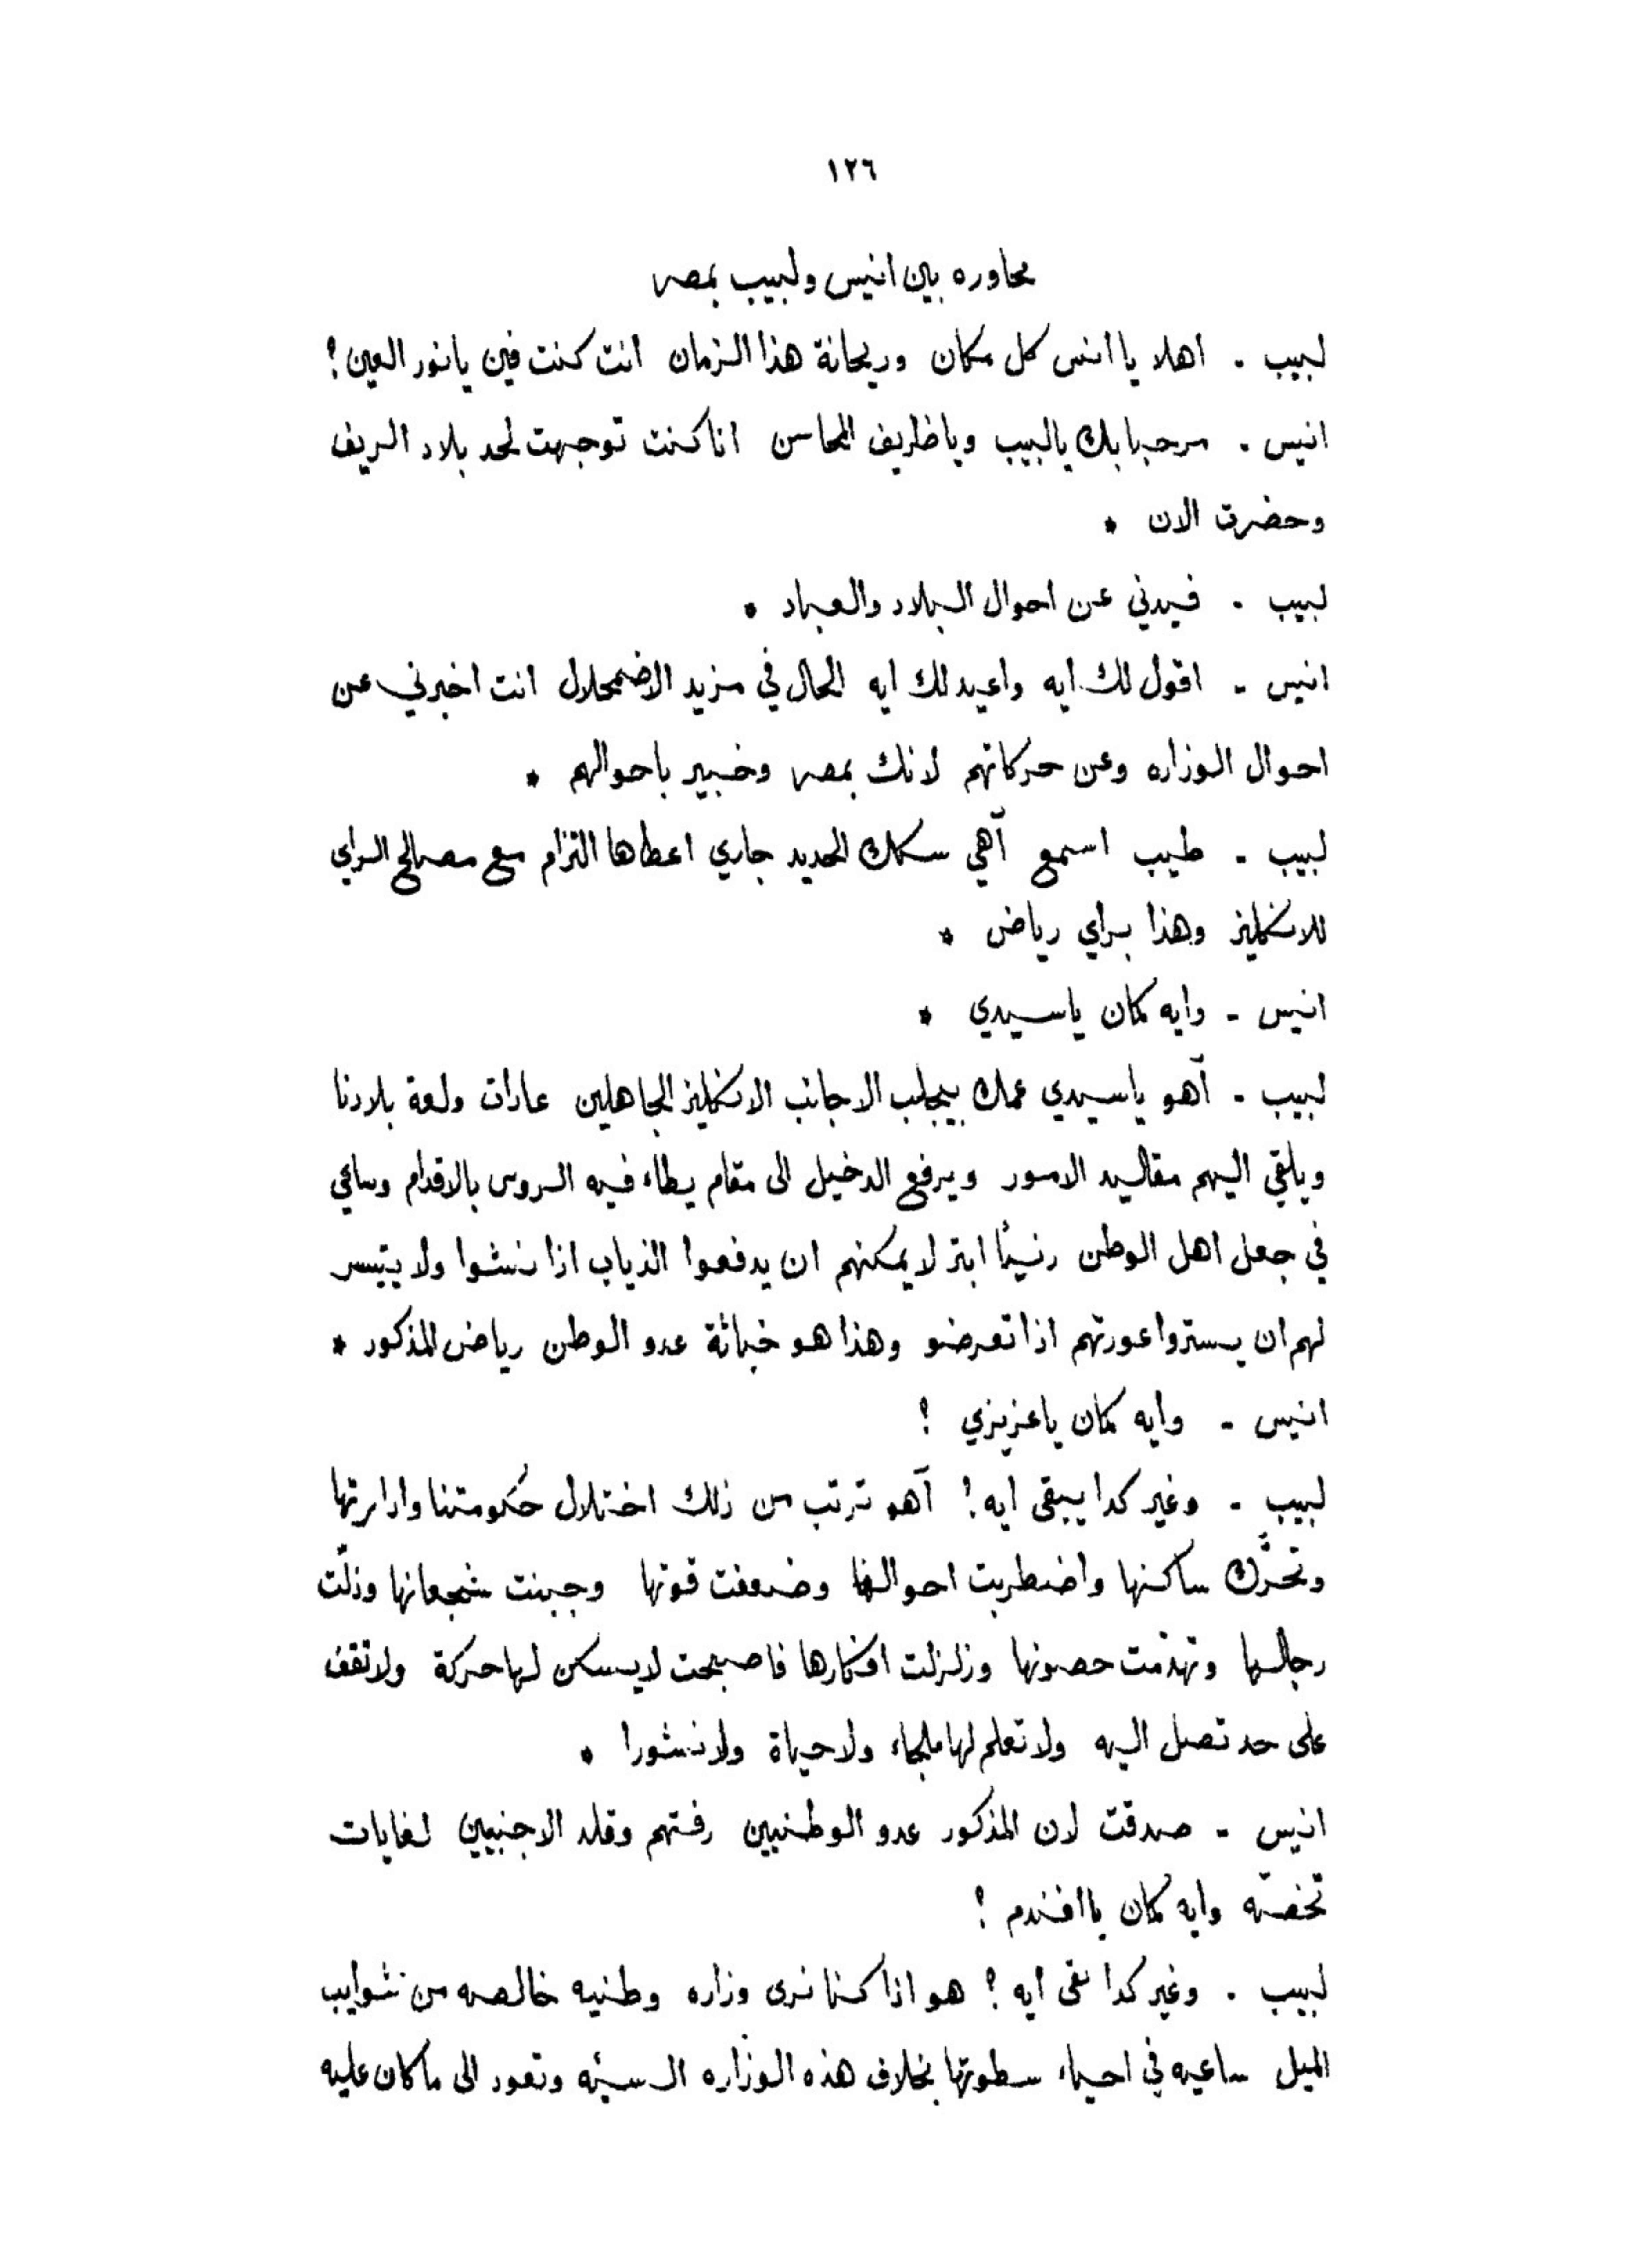 ١٢٦
محاوره بين انيس ولبيب بمصر
لبيب . اهلا يا انس كل مكان وريحانة هذا الزمان انت كنت فين يا نور العين ؟
انيس . مرحبا بك يالبيب ويا ظريف المحاسن انا كنت توجهت لحد بلاد الريف
وحضرت الان *
لبيب . فيدني عن احوال البلاد والعباد *
انيس - اقول لك ايه واعيد لك ايه الحال في مزيد الاضمحلال انت اخبرني عن
احوال الوزاره وعن حركاتهم لانك بمصر وخبير باحوالهم *
لبيب - طيب اسمع آهي سكك الحديد جاري اعطاها التزام مع مصالح الراي
للانكليز وهذا براي رياض *
انيس - وايه كمان ياسيدي *
لبيب - آهو ياسيدي عمك بيجلب الاجانب الانكليز الجاهلين عادات ولغة بلادنا
ويلقي اليهم مقاليد الامور ويرفع الدخيل الى مقام يطاء فيه الروس بالاقدام وساعي
في جعل اهل الوطن ابتر لا يمكنهم ان يدفعوا الذياب اذا نشوا ولا يتيسر
لهم ان يستروا عورتهم اذا تعرضو وهذا هو خباثة عدو الوطن رياض المذكور *
انيس - وايه كمان ياعزيزي ؟
لبيب - وغير كدا يبقى ايه ! آهو ترتب من ذلك اختلال حكومتنا وادارتها
وتحرَّك ساكنها واضطربت احوالها وضعفت قوتها وجبنت شجعانها وذلّت
رجالها وتهدّمت حصونها وزلزلت افكارها فاصبحت لا يسكن لها حركة ولا تقف
على حد تصل اليه ولا تعلم لها ملجاء ولا حياة ولا نشورا *
انيس - صدقت لان المذكور عدو الوطنيين رفتهم وقلد الاجنبيين لغايات
تخصّه وايه كمان يا افندم ؟
لبيب . وغير كدا بقى ايه ؟ هو اذا كنا نرى وزاره وطنيه خالصه من شوايب
الميل ساعيه في احياء سطوتها بخلاف هذه الوزاره السيئه وتعود الى ما كان عليه